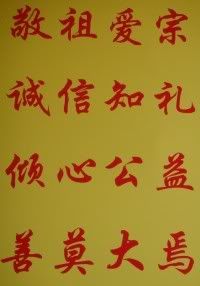 敬祖爱宗
诚信知礼
倾心公益
善莫大焉